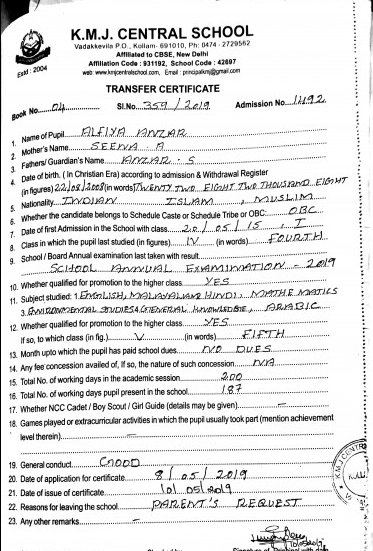 K.M.J. CENTRAL SCHOOL
Vadakkevila P.O., Kollam- 691010, Ph: 0474 - 2729562
Affiliated to CBSE, New Delhi
Affiliation Code : 931192, School Code : 42697
web: www.kmjcentralschool.com, Email : principalkmj@gmail.com
Estd : 2004
TRANSFER CERTIFICATE
Book No. 04 Sl.No. 359/2019 Admission No. 1492
1. Name of Pupil ALFIYA ANZAR
2. Mother's Name SEENA . A
3. Fathers/ Guardian's Name ANZAR . S
4. Date of birth. ( In Christian Era) according to admission & Withdrawal Register
(in figures) 22/08/2008 (in words) TWENTY TWO EIGHT TWO THOUSAND EIGHT
5. Nationality INDIAN ISLAM, MUSLIM
6. Whether the candidate belongs to Schedule Caste or Schedule Tribe or OBC: OBC
7. Date of first Admission in the School with class 20/05/15, I
8. Class in which the pupil studied (in figures) IV (in words) FOURTH
9. School / Board Annual examination last taken with result
SCHOOL ANNUAL EXAMINATION - 2019
10. Whether qualified for promotion to the higher class YES
11. Subject studied: 1. ENGLISH, MALAYALAM HINDI, MATHEMATICS
3. ENVIRONMENTAL STUDIES & GENERAL KNOWLEDGE, ARABIC
12. Whether qualified for promotion to the higher class YES
If so, to which class (in fig.) V (in words) FIFTH
13. Month upto which the pupil has paid school dues NO DUES
14. Any fee concession availed of, If so, the nature of such concession N/A
15. Total No. of working days in the academic session 200
16. Total No. of working days pupil present in the school 187
17. Whether NCC Cadet / Boy Scout / Girl Guide (details may be given) -
18. Games played or extracurricular activities in which the pupil usually took part (mention achievement
level therein) -
19. General conduct GOOD
20. Date of application for certificate 8/05/2019
21. Date of issue of certificate 10/05/2019
22. Reasons for leaving the school PARENT'S REQUEST
23. Any other remarks -
K.M.J. CENTRAL